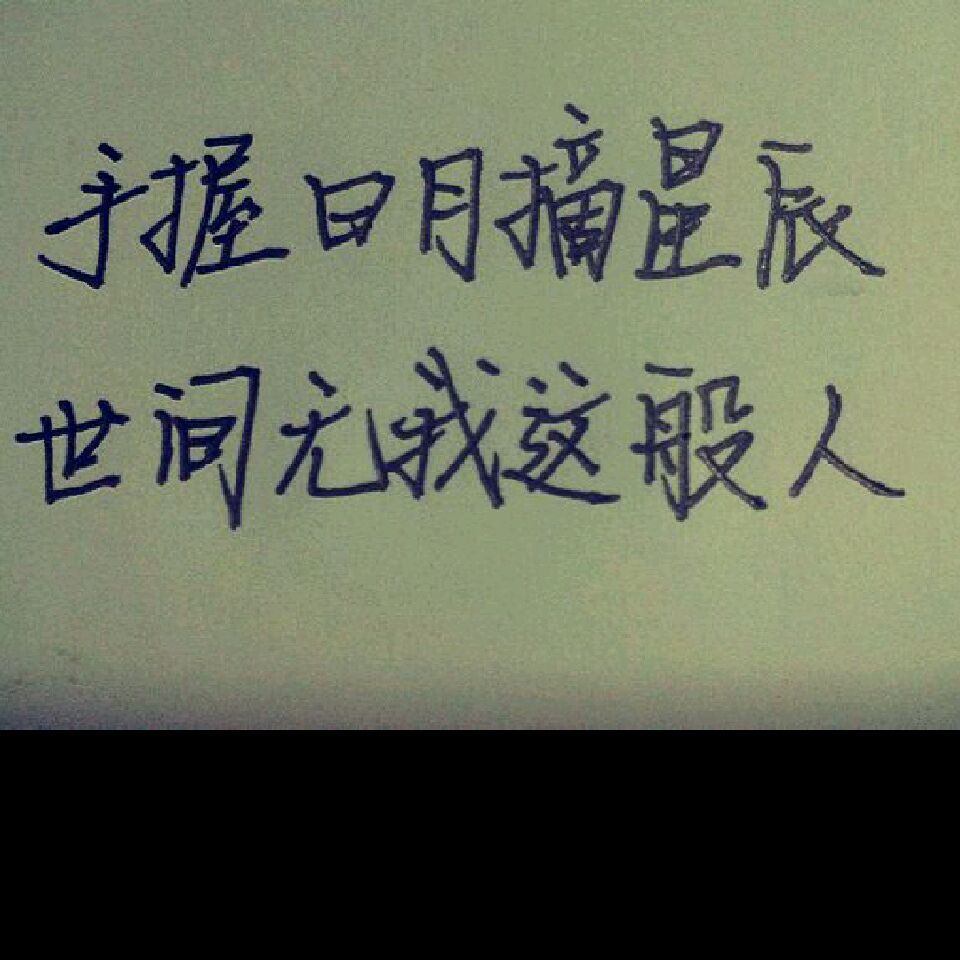 手握日月摘星辰
世间无我这般人